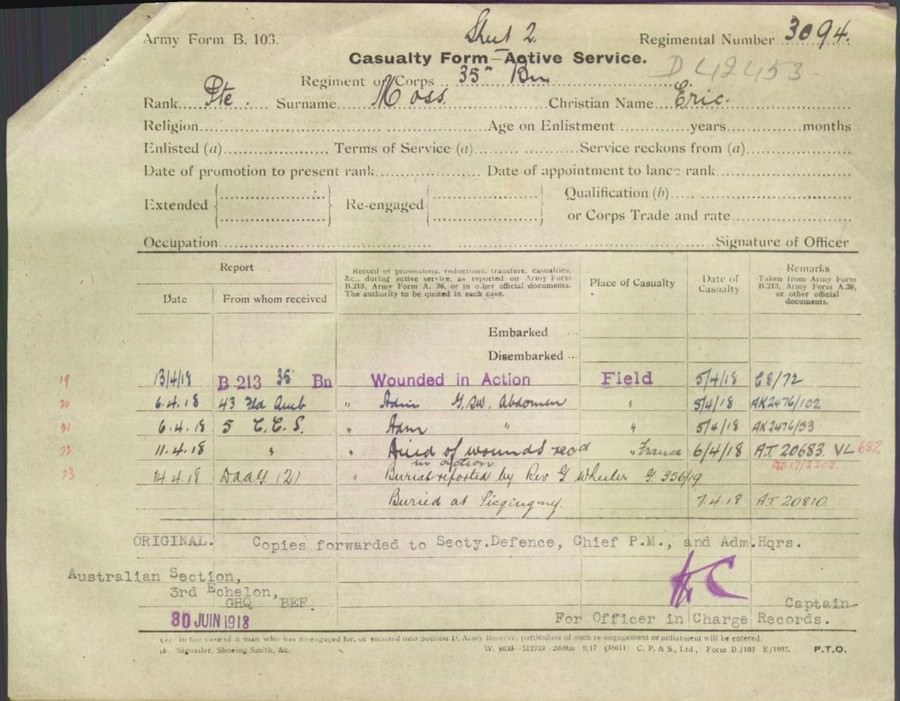 Sheet 2.
Army Form B. 103. Regimental Number 3094.
Casualty Form—Active Service.
D 42453
Regiment or Corps 35th Bn
Rank Pte. Surname Moss Christian Name Eric.
Religion Age on Enlistment years months
Enlisted (a) Terms of Service (a) Service reckons from (a)
Date of promotion to present rank Date of appointment to lance rank
Extended Re-engaged Qualification (b)
or Corps Trade and rate
Occupation Signature of Officer
Report
Date From whom received
Record of promotions, reductions, transfers, casualties, &c., during active service, as reported on Army Form B.213, Army Form A. 36, or in other official documents. The authority to be quoted in each case.
Place of Casualty
Date of Casualty
Remarks
Taken from Army Form B.213, Army Form A.36, or other official documents.
Embarked
Disembarked
19 13/4/18 B 213 35 Bn Wounded in Action Field 5/4/18 C8/72
20 6.4.18 43 Fld Amb " Adm G.S.W. Abdomen " 5/4/18 AK2476/102
21 6.4.18 5 C.C.S. " Adm " " 5/4/18 AK2476/93
22 11.4.18 " " Died of wounds recd in action " France 6/4/18 AT 20683 VL 687
23 14.4.18 DAAG (2) " Burial reported by Rev G Wheeler G 356/19
Buried at Picquigny 7.4.18 AT 20810
ORIGINAL. Copies forwarded to Secty.Defence, Chief P.M., and Adm.Hqrs.
Australian Section,
3rd Echelon,
GHQ BEF.
Captain
30 JUIN 1918
For Officer in Charge Records.
(a) In the case of a man who has re-engaged for, or enlisted into Section D, Army Reserve, particulars of such re-engagement or enlistment will be entered.
(b) Signaller, Shoeing Smith, &c. C. P. & S., Ltd., Form B./103 E/1807. P.T.O.